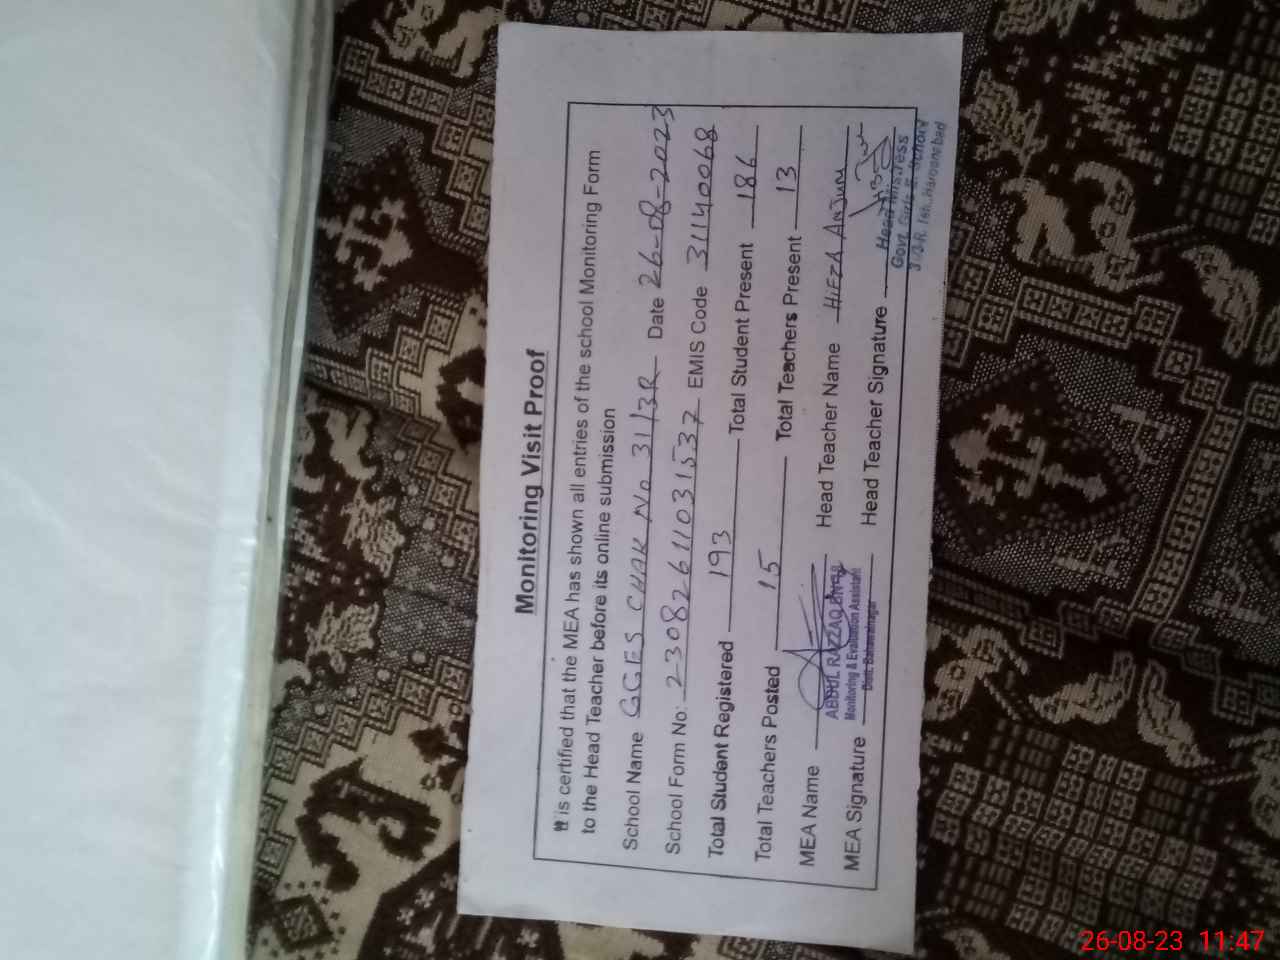 Monitoring Visit Proof
It is certified that the MEA has shown all entries of the school Monitoring Form
to the Head Teacher before its online submission
School Name GGES CHAK No 31/3R Date 26-08-2023
School Form No: 23082611031537 EMIS Code 31140068
Total Student Registered 193 Total Student Present 186
Total Teachers Posted 15 Total Teachers Present 13
MEA Name Head Teacher Name HiFZA ANJUM
ABDUL RAZZAQ
Monitoring & Evaluation Assistant
Distt. Bahawalnagar
MEA Signature Head Teacher Signature
Head Mistress
Govt. Girls E. School
Teh. Haroonabad
26-08-23 11:47